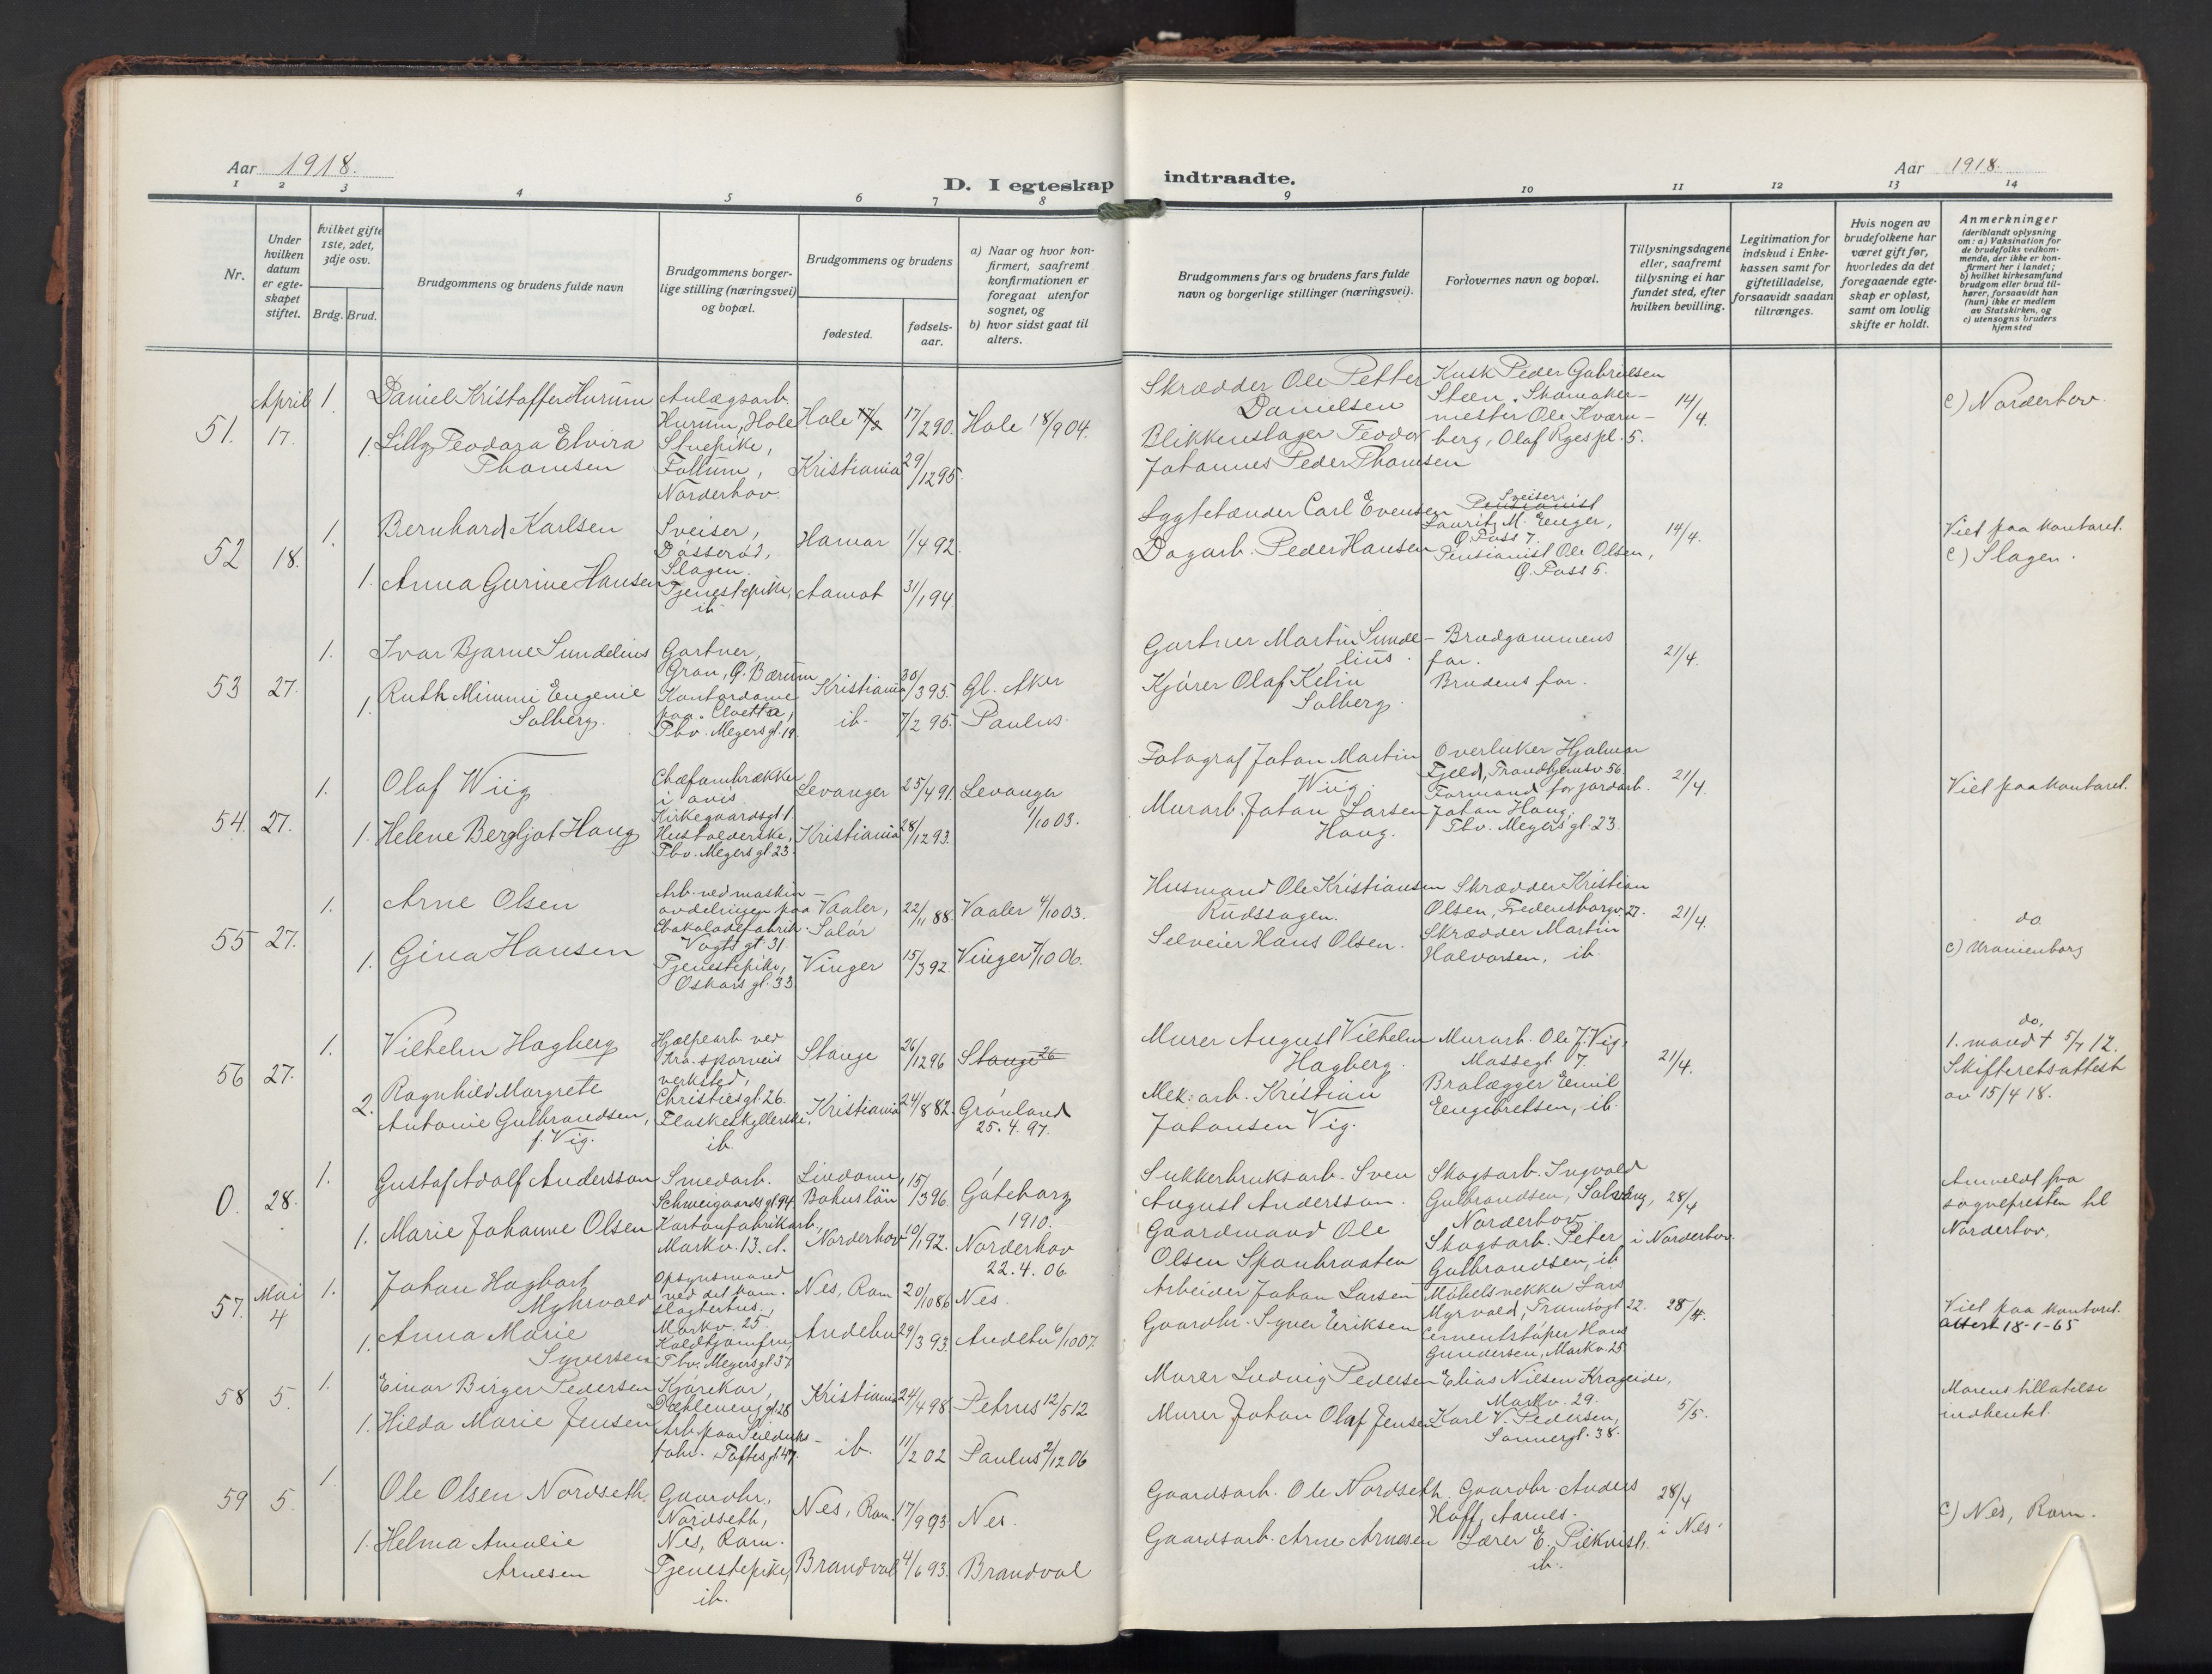 Aar 1918.
D. I egteskap indtraadte.
Aar 1918.
1 2 3 4 5 6 7 8 9 10 11 12 13 14
Nr.
Under hvilken datum er egte-skapet stiftet.
hvilket gifte 1ste, 2det, 3dje osv.
Brdg. Brud.
Brudgommens og brudens fulde navn
Brudgommens borger-lige stilling (næringsvei) og bopæl.
Brudgommens og brudens
fødested.
fødsels-aar.
a) Naar og hvor kon-firmert, saafremt konfirmationen er foregaat utenfor sognet, og
b) hvor sidst gaat til alters.
Brudgommens fars og brudens fars fulde navn og borgerlige stillinger (næringsvei).
Forlovernes navn og bopæl.
Tillysningsdagene eller, saafremt tillysning ei har fundet sted, efter hvilken bevilling.
Legitimation for indskud i Enke-kassen samt for giftetilladelse, forsaavidt saadan tiltrænges.
Hvis nogen av brudefolkene har været gift før, hvorledes da det foregaaende egte-skap er opløst, samt om lovlig skifte er holdt.
Anmerkninger (deriblandt oplysning om: a) Vaksination for de brudefolks vedkom-mende, der ikke er kon-firmert her i landet; b) hvilket kirkesamfund brudgom eller brud til-hører, forsaavidt han (hun) ikke er medlem av Statskirken, og c) utensogns bruders hjemsted
51. April 17. 1. Daniel Kristoffer Hurum
Anlægsarb. Hurum, Hole
Hole 17/2 17/2 90. Hole 18/9 04.
1. Lilly Teodora Elvira Thomsen
Stuepike, Follum, Norderhov.
Kristiania 29/12 95.
Skrædder Ole Petter Danielsen
Blikkenslager Teodor Johannes Peder Thomsen
Kusk Peder Gabrielsen Steen. Skomaker-mester Ole Kværn-berg, Olaf Ryes pl. 5.
14/4.
c) Norderhov.
52 18. 1. Bernhard Karlsen
Sveiser, Døsserød, Slagen.
Hamar 1/4 92.
1. Anna Gurine Hansen
Tjenestepike, ib.
Aamot 31/1 94.
Lygtetænder Carl Evensen
Dagarb. Peder Hansen
Pensionist Sveiser Lauritz M. Enger, G. Pass 7.
Pensionist Ole Olsen, G. Pass 5.
14/4.
Viet paa kontoret.
c) Slagen.
53 27. 1. Ivar Bjarne Sundelius
Gartner, Grav, Ø. Bærum
Kristiania 30/3 95. Gl. Aker
1. Ruth Mimmi Eugenie Solberg.
Kontordame paa "Cloetta", Thv. Meyersgt. 19.
ib. 7/2 95. Paulus.
Gartner Martin Sunde-lius.
Kjører Olaf Kelin Solberg.
Brudgommens far.
Brudens far.
21/4.
54. 27. 1. Olaf Wiig
Chefombrækker i avis. Kirkegaardsgt 1
Levanger 25/4 91. Levanger 1/10 03.
1. Helene Bergljot Haug
Husholderske, Thv. Meyers gt. 23.
Kristiania 28/12 93.
Fotograf Johan Martin Wiig.
Murarb. Johan Larsen Haug.
Overluker Hjalmar Fjeld, Trondhjemsv 56.
Formand for jordarb. Johan Haug, Thv. Meyers gt. 23.
21/4.
Viet paa kontoret.
55 27. 1. Arne Olsen
Arb. ved maskin-avdelingen paa Chokoladefabrik. Vogts gt. 31.
Vaaler, Solør 22/11 88. Vaaler 4/10 03.
1. Gina Hansen
Tjenestepike, Oskars gt. 33
Vinger 15/3 92. Vinger 7/10 06.
Husmand Ole Kristiansen Rudssagen.
Selveier Hans Olsen.
Skrædder Kristian Olsen, Fredensborgv. 27.
Skrædder Martin Halvorsen, ib.
21/4.
do.
c) Uranienborg
56 27. 1. Vilhelm Hagberg
Hjælpearb. ved Kra. sporveis verksted, Christies gt. 26.
Stange 26/12 96 Stange 26
2. Ragnhild Margrete Antonie Gulbrandsen, f. Vig.
Flaskeskyllerske, ib.
Kristiania 24/8 82. Grønland 25. 4. 97.
Murer August Vilhelm Hagberg.
Mek: arb. Kristian Johansen Vig.
Murarb. Ole J. Vig. Mossegt 7.
Brolægger Emil Engebretsen, ib.
21/4.
do.
1. mand † 5/7 12. Skifteretsattest av 15/4 18.
0. 28. 1. Gustaf Adolf Andersson
Smedarb. Schweigaards gt. 94.
Lindome, Bohuslän 15/3 96. Göteborg 1910.
1. Marie Johanne Olsen
Kartonfabrikarb. Markv. 13. d.
Norderhov 10/1 92. Norderhov 22. 4. 06.
Sukkerbruksarb. Sven August Andersson.
Gaardmand Ole Olsen Sponbraaten
Skogsarb. Ingvald Gulbrandsen, Norderhov
Skogsarb. Peter Gulbrandsen, ib
28/4 i Norderhov.
Anmeldt fra sognepresten til Norderhov.
57. Mai 4 1. Johan Hagbart Myhrvold
Opsynsmand ved det kom. slagtehus, Markv. 25.
Nes, Rom 20/10 86 Nes.
1. Anna Marie Syversen
Koldtjomfru, Thv. Meyers gt 37.
Andebu 29/3 93. Andebu 6/10 07.
Arbeider Johan Larsen
Gaardbr. Syver Eriksen
Møbelsnekker Lars Myrvold, Tromsøgt 22.
Cementstøper Hans Gundersen, Markv. 25
28/4.
Viet paa kontoret.
attest 18-1-65
58 5. 1. Einar Birger Pedersen
Kjørekar, Dæhleneng gt. 28
Kristiania 24/4 98. Petrus 12/5 12
1. Hilda Marie Jensen
Arb. paa Seilduks-fabr. Toftes gt 47.
ib. 11/2 02 Paulus 2/12 06
Murer Ludvig Pedersen
Murer Johan Olaf Jensen
Elias Nilsen Krageide, Markv. 29.
Karl V. Pedersen, Sannergt. 38.
5/5.
Morens tillatelse indhentet.
59 5. 1. Ole Olsen Nordseth.
Gaardbr., Nordseth, Nes, Rom.
Nes, Rom. 17/9 93. Nes.
1. Helma Amalie Arnesen
Tjenestepike, ib.
Brandval 4/6 93. Brandval
Gaardsarb. Ole Nordseth.
Gaardsarb. Arne Arnesen
Gaardbr. Anders Hoff, Aarnes.
Lærer E. ib.
28/4 i Nes.
c) Nes, Rom.